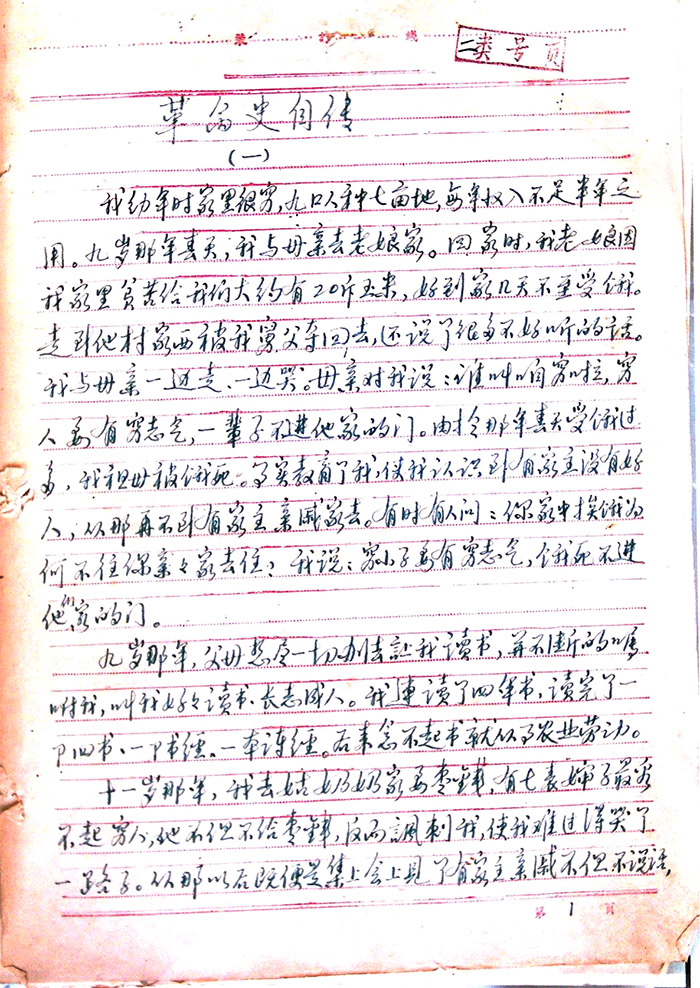 装订线
二类号页
革命史自传
(一)
我幼年时家里很穷,九口人种七亩地,每年收入不足半年之
用。九岁那年春天,我与母亲去老娘家。回家时,我老娘因
我家里贫苦给我们大约有20斤玉米,好到家几天不至受饿。
走到他村家西被我舅父夺回去,还说了很多不好听的话。
我与母亲一边走、一边哭。母亲对我说:谁叫咱穷啦,穷
人要有穷志气,一辈子不进他家的门。由于那年春天受饿过
多,我祖母被饿死。事实教育了我,使我认识到有家主没有好
人,从那再不到有家主亲戚家去。有时有人问:你家中挨饿为
何不往你亲々家去住;我说:穷小子要有穷志气,饿死不进
他们家的门。
九岁那年,父母想尽一切办法让我读书,并不断的嘱
咐我,叫我好々读书、长志成人。我连读了四年书,读完了一
卩四书、一卩书经、一本诗经。后来念不起书就从事农业劳动。
十一岁那年,我去姑奶奶家要枣,有七表婶子最看
不起穷人,他不但不给枣,反而讽刺我,使我难过得哭了
一路子。从那以后既便是集上会上见了有家主亲戚不但不说话,
第1页